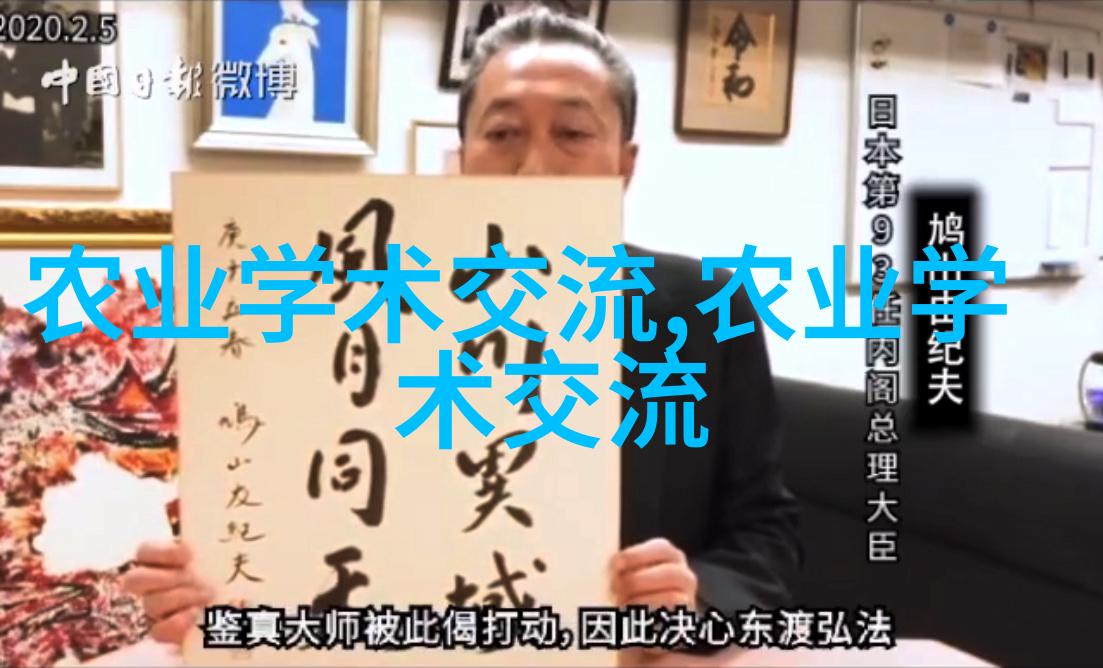 2020.2.5
中國日報微博
令和
日本第93任内阁总理大臣
鸠山由纪夫
山川異域
風月同天
庚子立春 鳩山友紀夫
农业学术交流,农业学
术交流
鉴真大师被此偈打动,因此决心东渡弘法